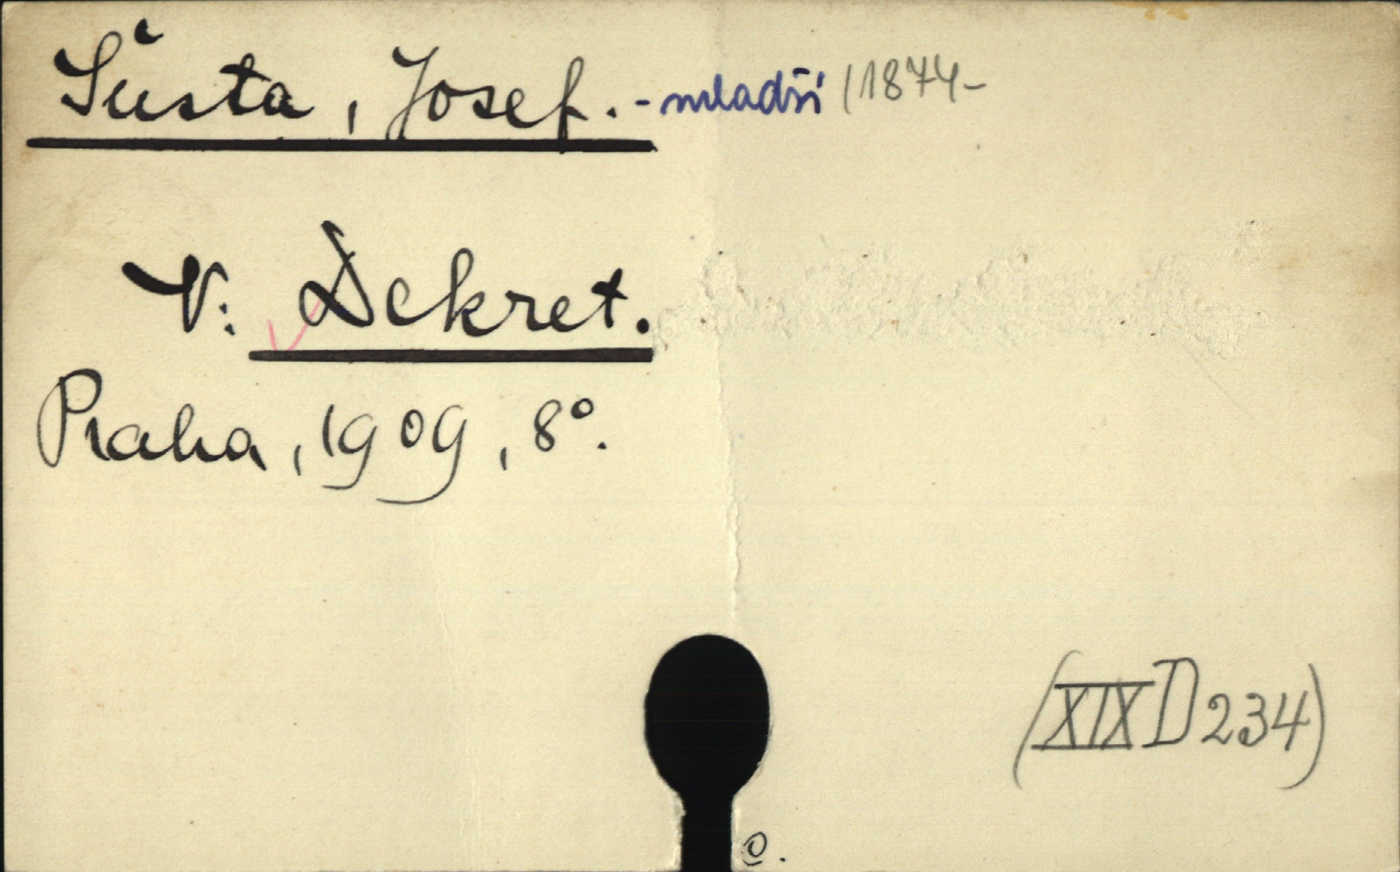 Šusta, Josef. - mladší (1874-
V: Dekret.
Praha, 1909, 8°.
(XIX D 234)
O.